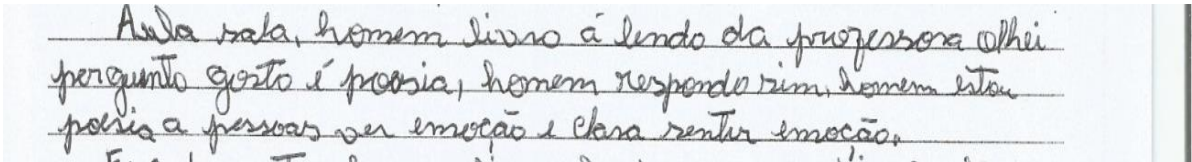 Aula sala, homem livro á lendo da professora olhei
pergunto gosto é poosia, homem respondo sim, homem estou
poesia a pessoas ver emoção e clara sentir emoção.